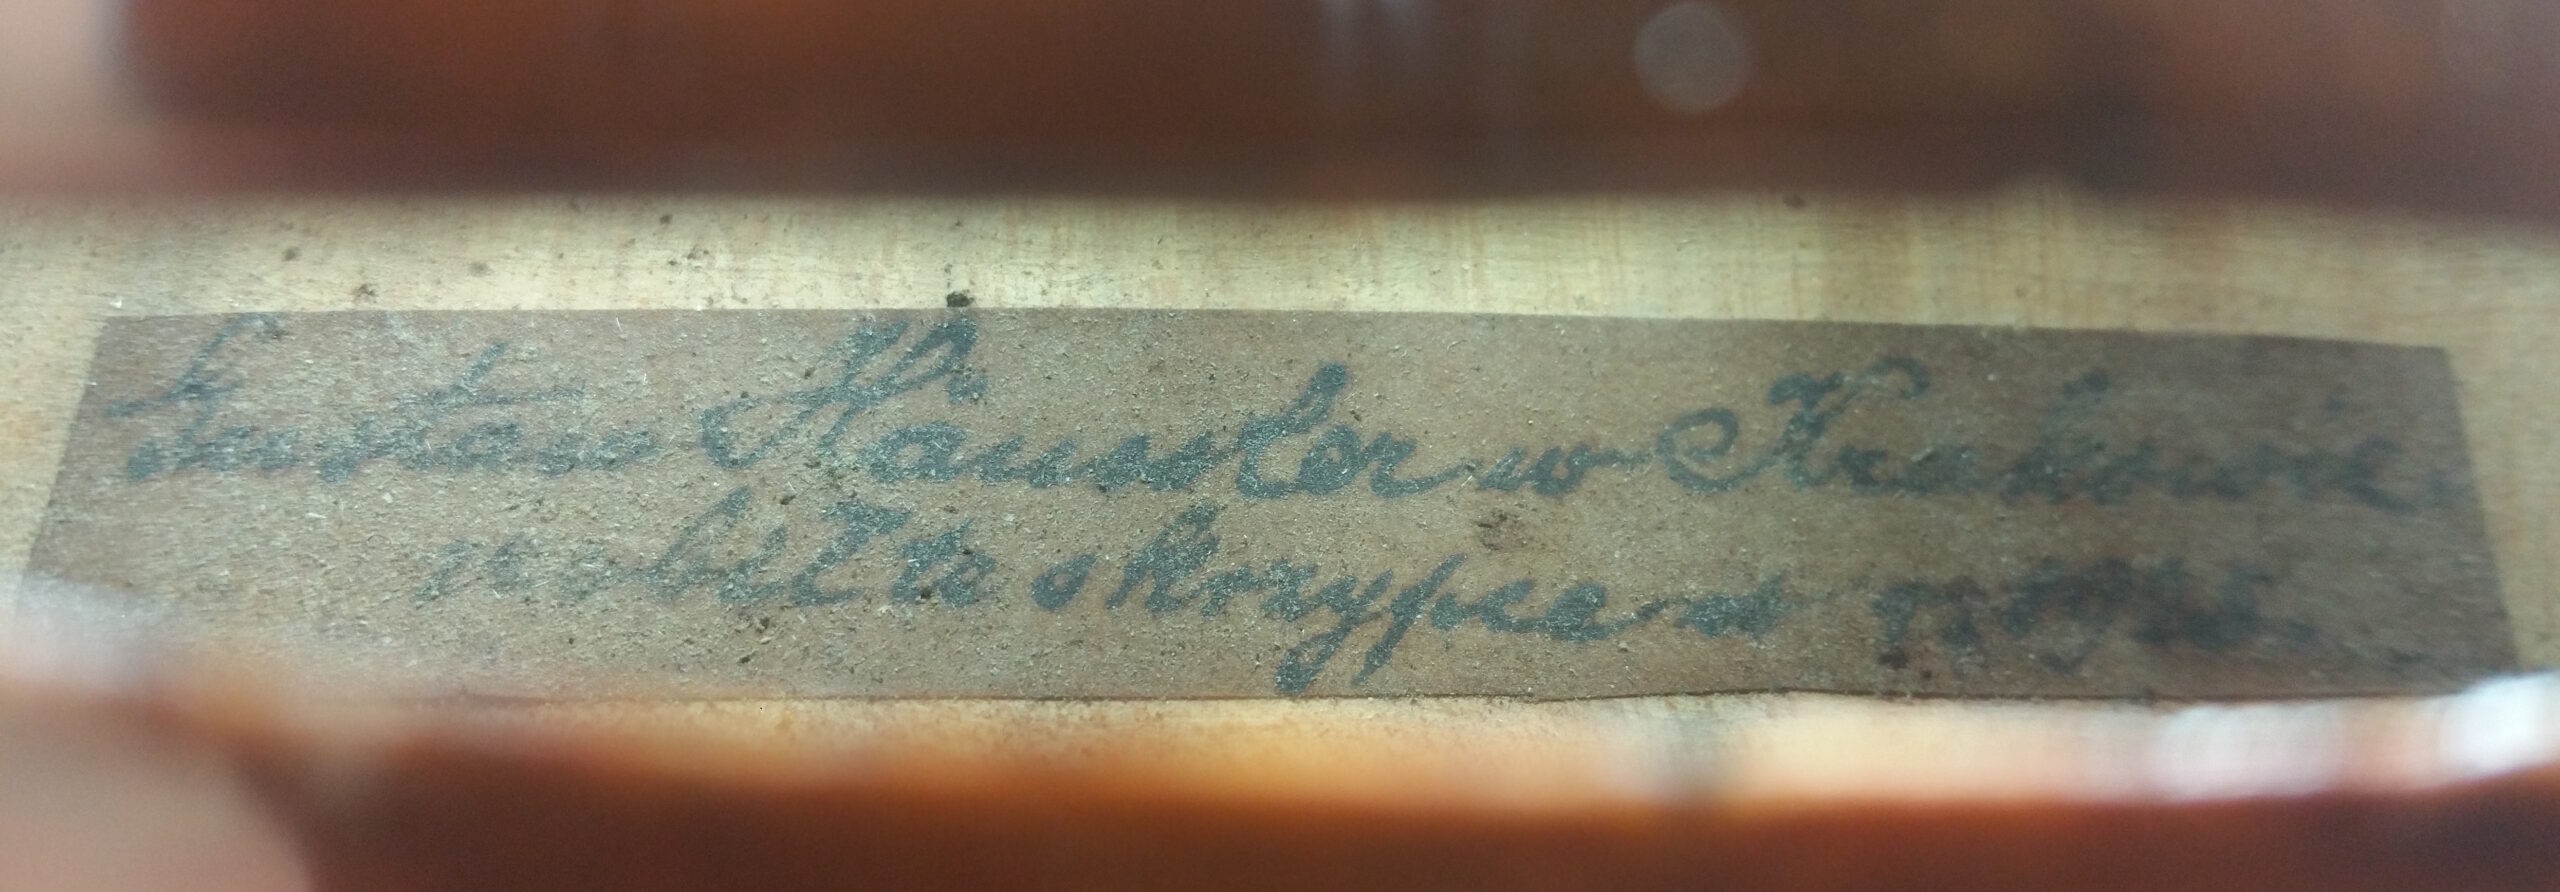 Gustaw Häussler w Krakowie
robił te skrzypce w r.